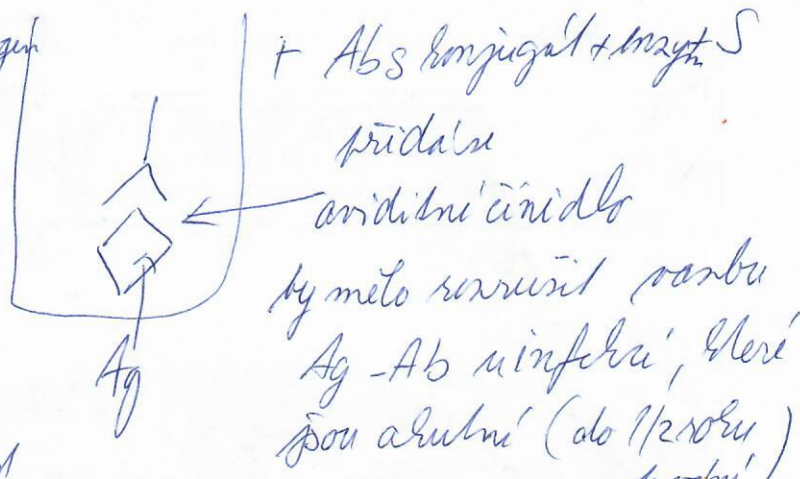 gen
+ Ab s konjugát + enzym S
přidá se
aviditní činidlo
by mělo rozrušit vazbu
Ag
Ag - Ab u infekcí, které
jsou akutní (do 1/2 roku)